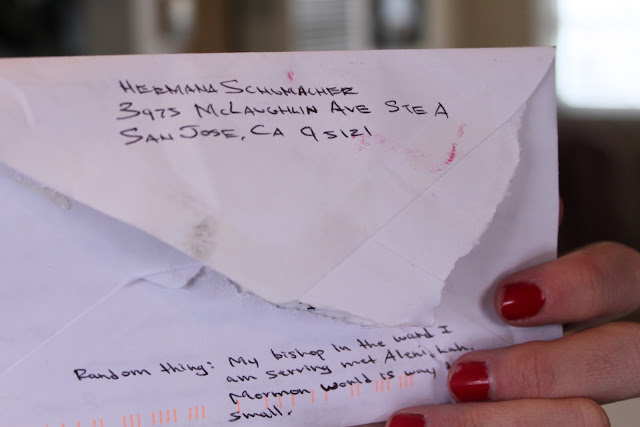 Hermana Schumacher
3975 McLaughlin Ave Ste A
San Jose, CA 95121
Random thing: My bishop in the ward I
am serving met Aleni, hah.
Mormon world is way
small.